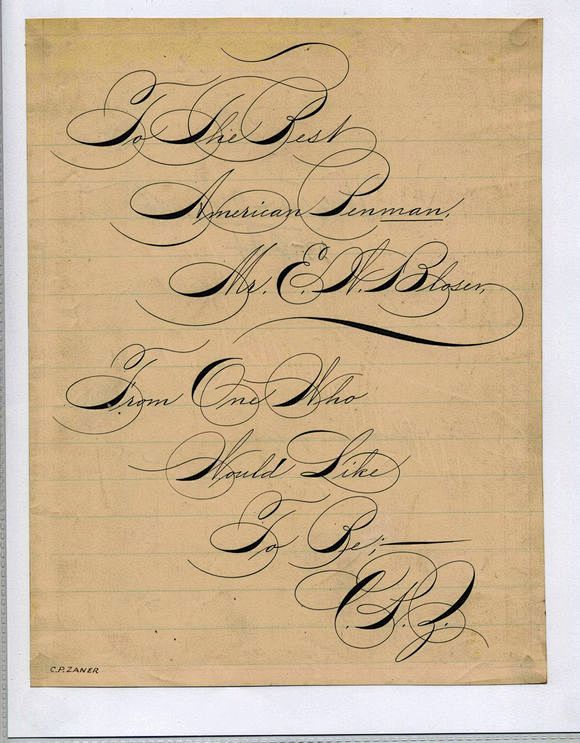 To The Best
American Penman,
Mr. E. W. Bloser,
From One Who
Would Like
To Be;—
C. P. Z.
C.P. ZANER